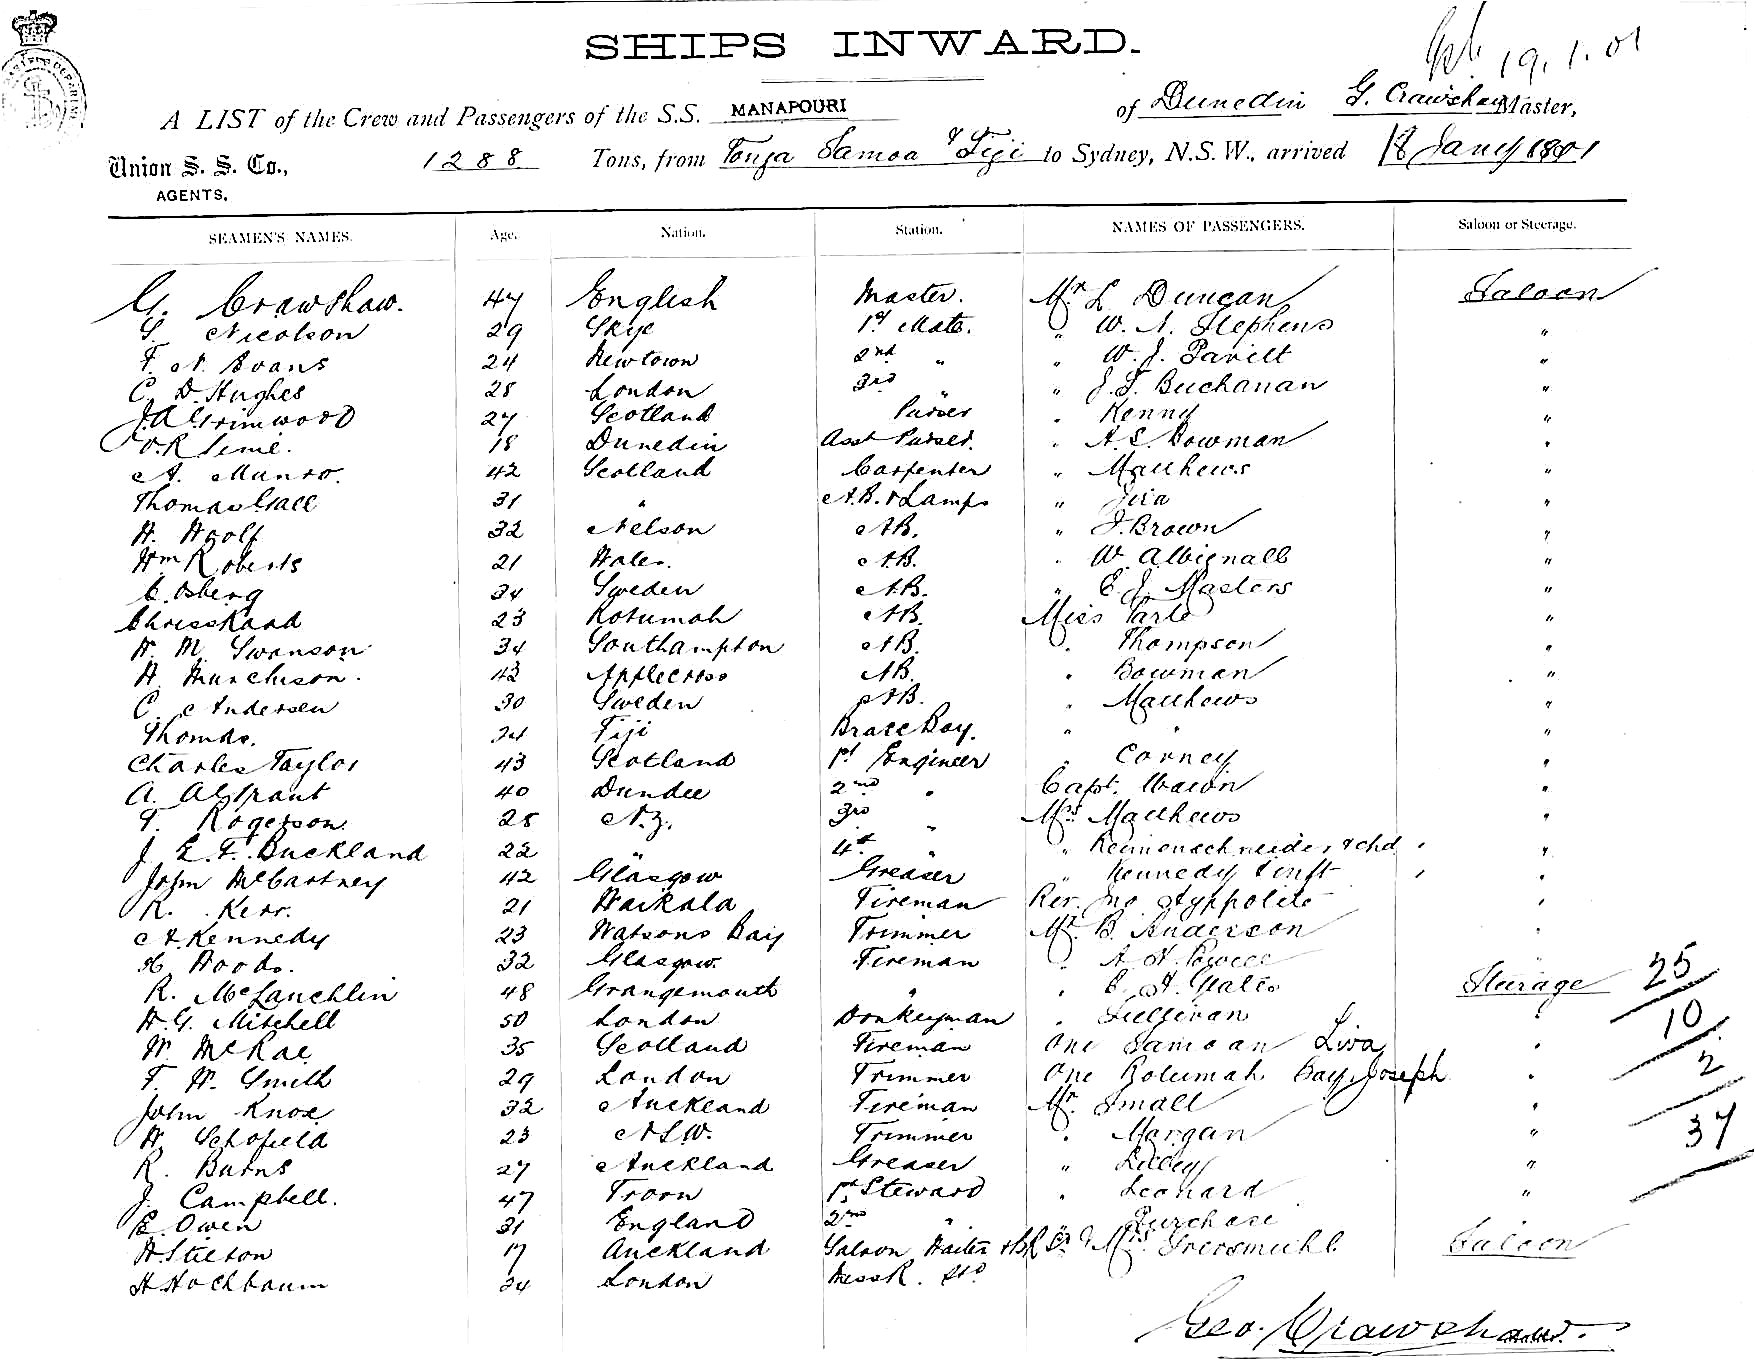 SHIPS INWARD.
19.1.01
A LIST of the Crew and Passengers of the S.S. MANAPOURI of Dunedin G. Crawshaw Master,
Union S. S. Co., 1288 Tons, from Tonga Samoa & Fiji to Sydney, N.S.W., arrived 18 Jany 1901
AGENTS.
SEAMEN'S NAMES. Age. Nation. Station. NAMES OF PASSENGERS. Saloon or Steerage.
G. Crawshaw. 47 English Master. Mr L Duncan Saloon
S. Nicolson 29 Skye 1st Mate. " W. A. Stephens "
F. N. Evans 24 Newtown 2nd " " W. J. "
C. D. Hughes 28 London 3rd " J. F. Buchanan "
J.A Grimwood 27 Scotland Purser " Kenny "
18 Dunedin Asst Purser. " A. E. Bowman "
A. Munro. 42 Scotland Carpenter " Matthews "
Thomas 31 " A.B. & Lamps " "
H. Woolf 32 Nelson A.B. " J. Brown "
Wm Roberts 21 Wales. A.B. " W. "
C. Osberg 34 Sweden A.B. " E. J. Masters "
23 Rotumah A.B. Miss "
W. M. Swanson 34 Southampton A.B. " Thompson "
Murchison. Applecross A.B. " Bowman "
C. Andersen 30 Sweden A.B. " Matthews "
Thomas. Fiji Boy. " " "
Charles Taylor 43 Scotland 1st Engineer " Corney "
A. 40 Dundee 2nd " Capt. "
T. Rogerson 25 N.Z. 3rd " Mrs Matthews "
J. E. F. Buckland 22 " 4th " " & chd "
John McCartney 42 Glasgow Greaser " Kennedy & inft "
R. Kerr. 21 Fireman Rev. Jno "
A. Kennedy 23 Watsons Bay Trimmer Mr. B. Anderson "
H. Woods. 32 Glasgow. Fireman " A. "
R. McLauchlin 48 Grangemouth " " C. A. Steerage 25
W.G. Mitchell 50 London Donkeyman " Sullivan "
W. McRae 35 Scotland Fireman One Samoan " 10
F. W. Smith 29 London Trimmer One Rotumah Boy, Joseph " 2
John Knox 32 Auckland Fireman Mr. Small "
W. Schofield 23 N.S.W. Trimmer " Morgan " 37
R. Burns 27 Auckland Greaser " Lilley "
J. Campbell. 47 Troon 1st Steward " Leonard "
E. Owen 31 England 2nd " " Purchase
17 Auckland Saloon Waiter Saloon
H Hochbaum 24 London
Geo. Crawshaw.